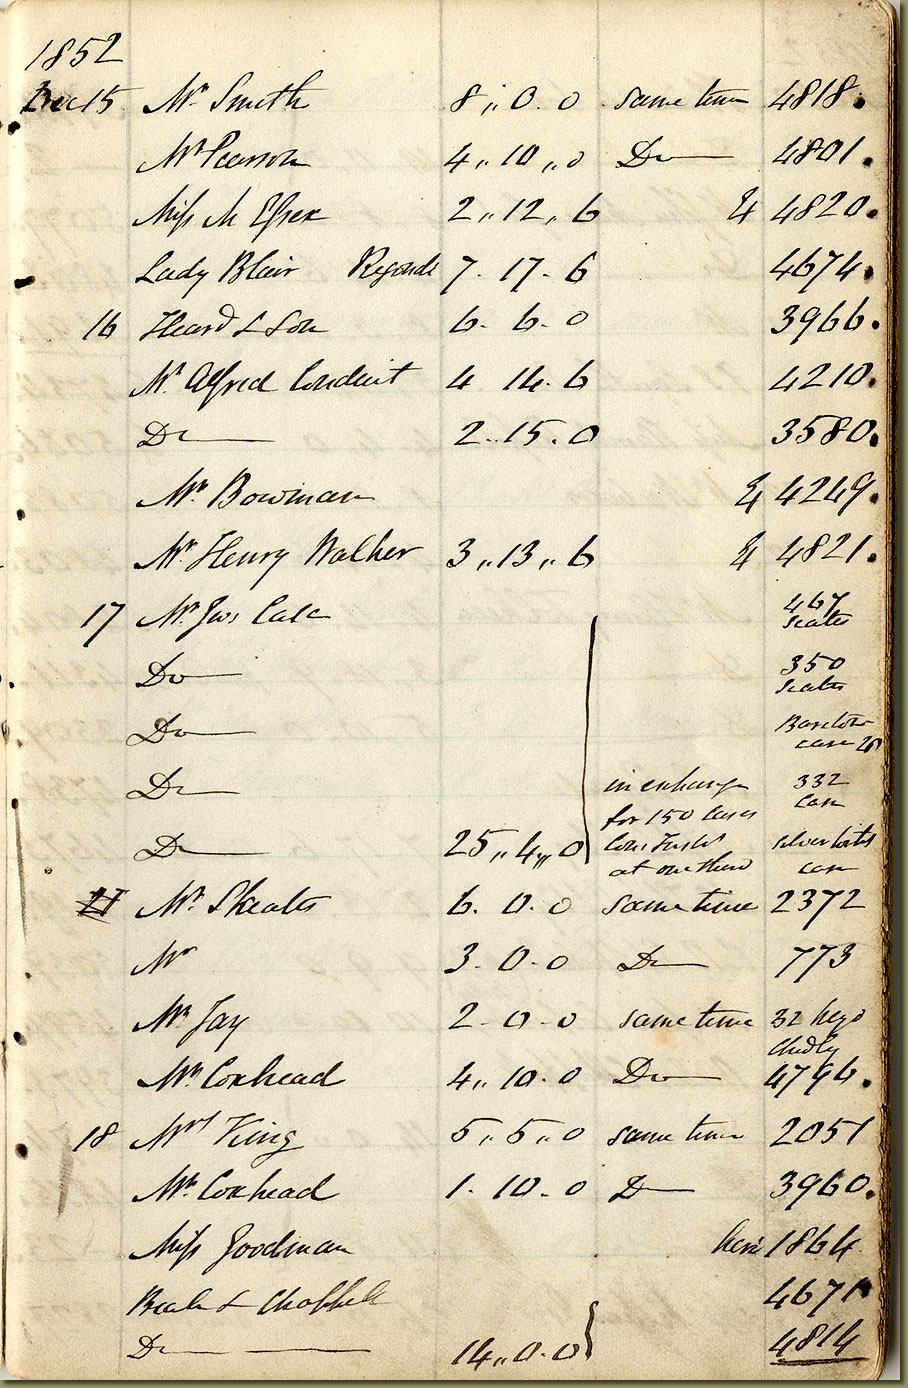 1852
Dec 15 Mr Smith 8,, 0. 0 same time 4818.
Mr Pearson 4,, 10,, 0 Do 4801.
Miss M Essex 2,, 12,, 6 4820.
Lady Blair Regondi 7. 17. 6 4674.
16 Heard & Son 6. 6. 0 3966.
Mr Alfred Conduit 4 14. 6 4210.
Do 2. 15. 0 3580.
Mr Bowman 4249.
Mr Henry Walker 3,, 13,, 6 4821.
17 Mr Jas Case 467
Scates
Do 350
Scates
Do Baritone
case
Do in exchange 332
for 150 Cases case
Do 25,, 4,, 0 silver
at one third case
Mr Skeats 6. 0. 0 same time 2372
Mr 3. 0. 0 Do 773
Mr Jay 2. 0. 0 same time 32 keys
Chidley
Mr Coxhead 4,, 10. 0 Do 4796.
18 Mrs King 5,, 5,, 0 same time 2051
Mr Coxhead 1. 10. 0 D 3960.
Miss Goodman hire 1864
Beale & Chappell 4671
Do 14,, 0. 0 4814